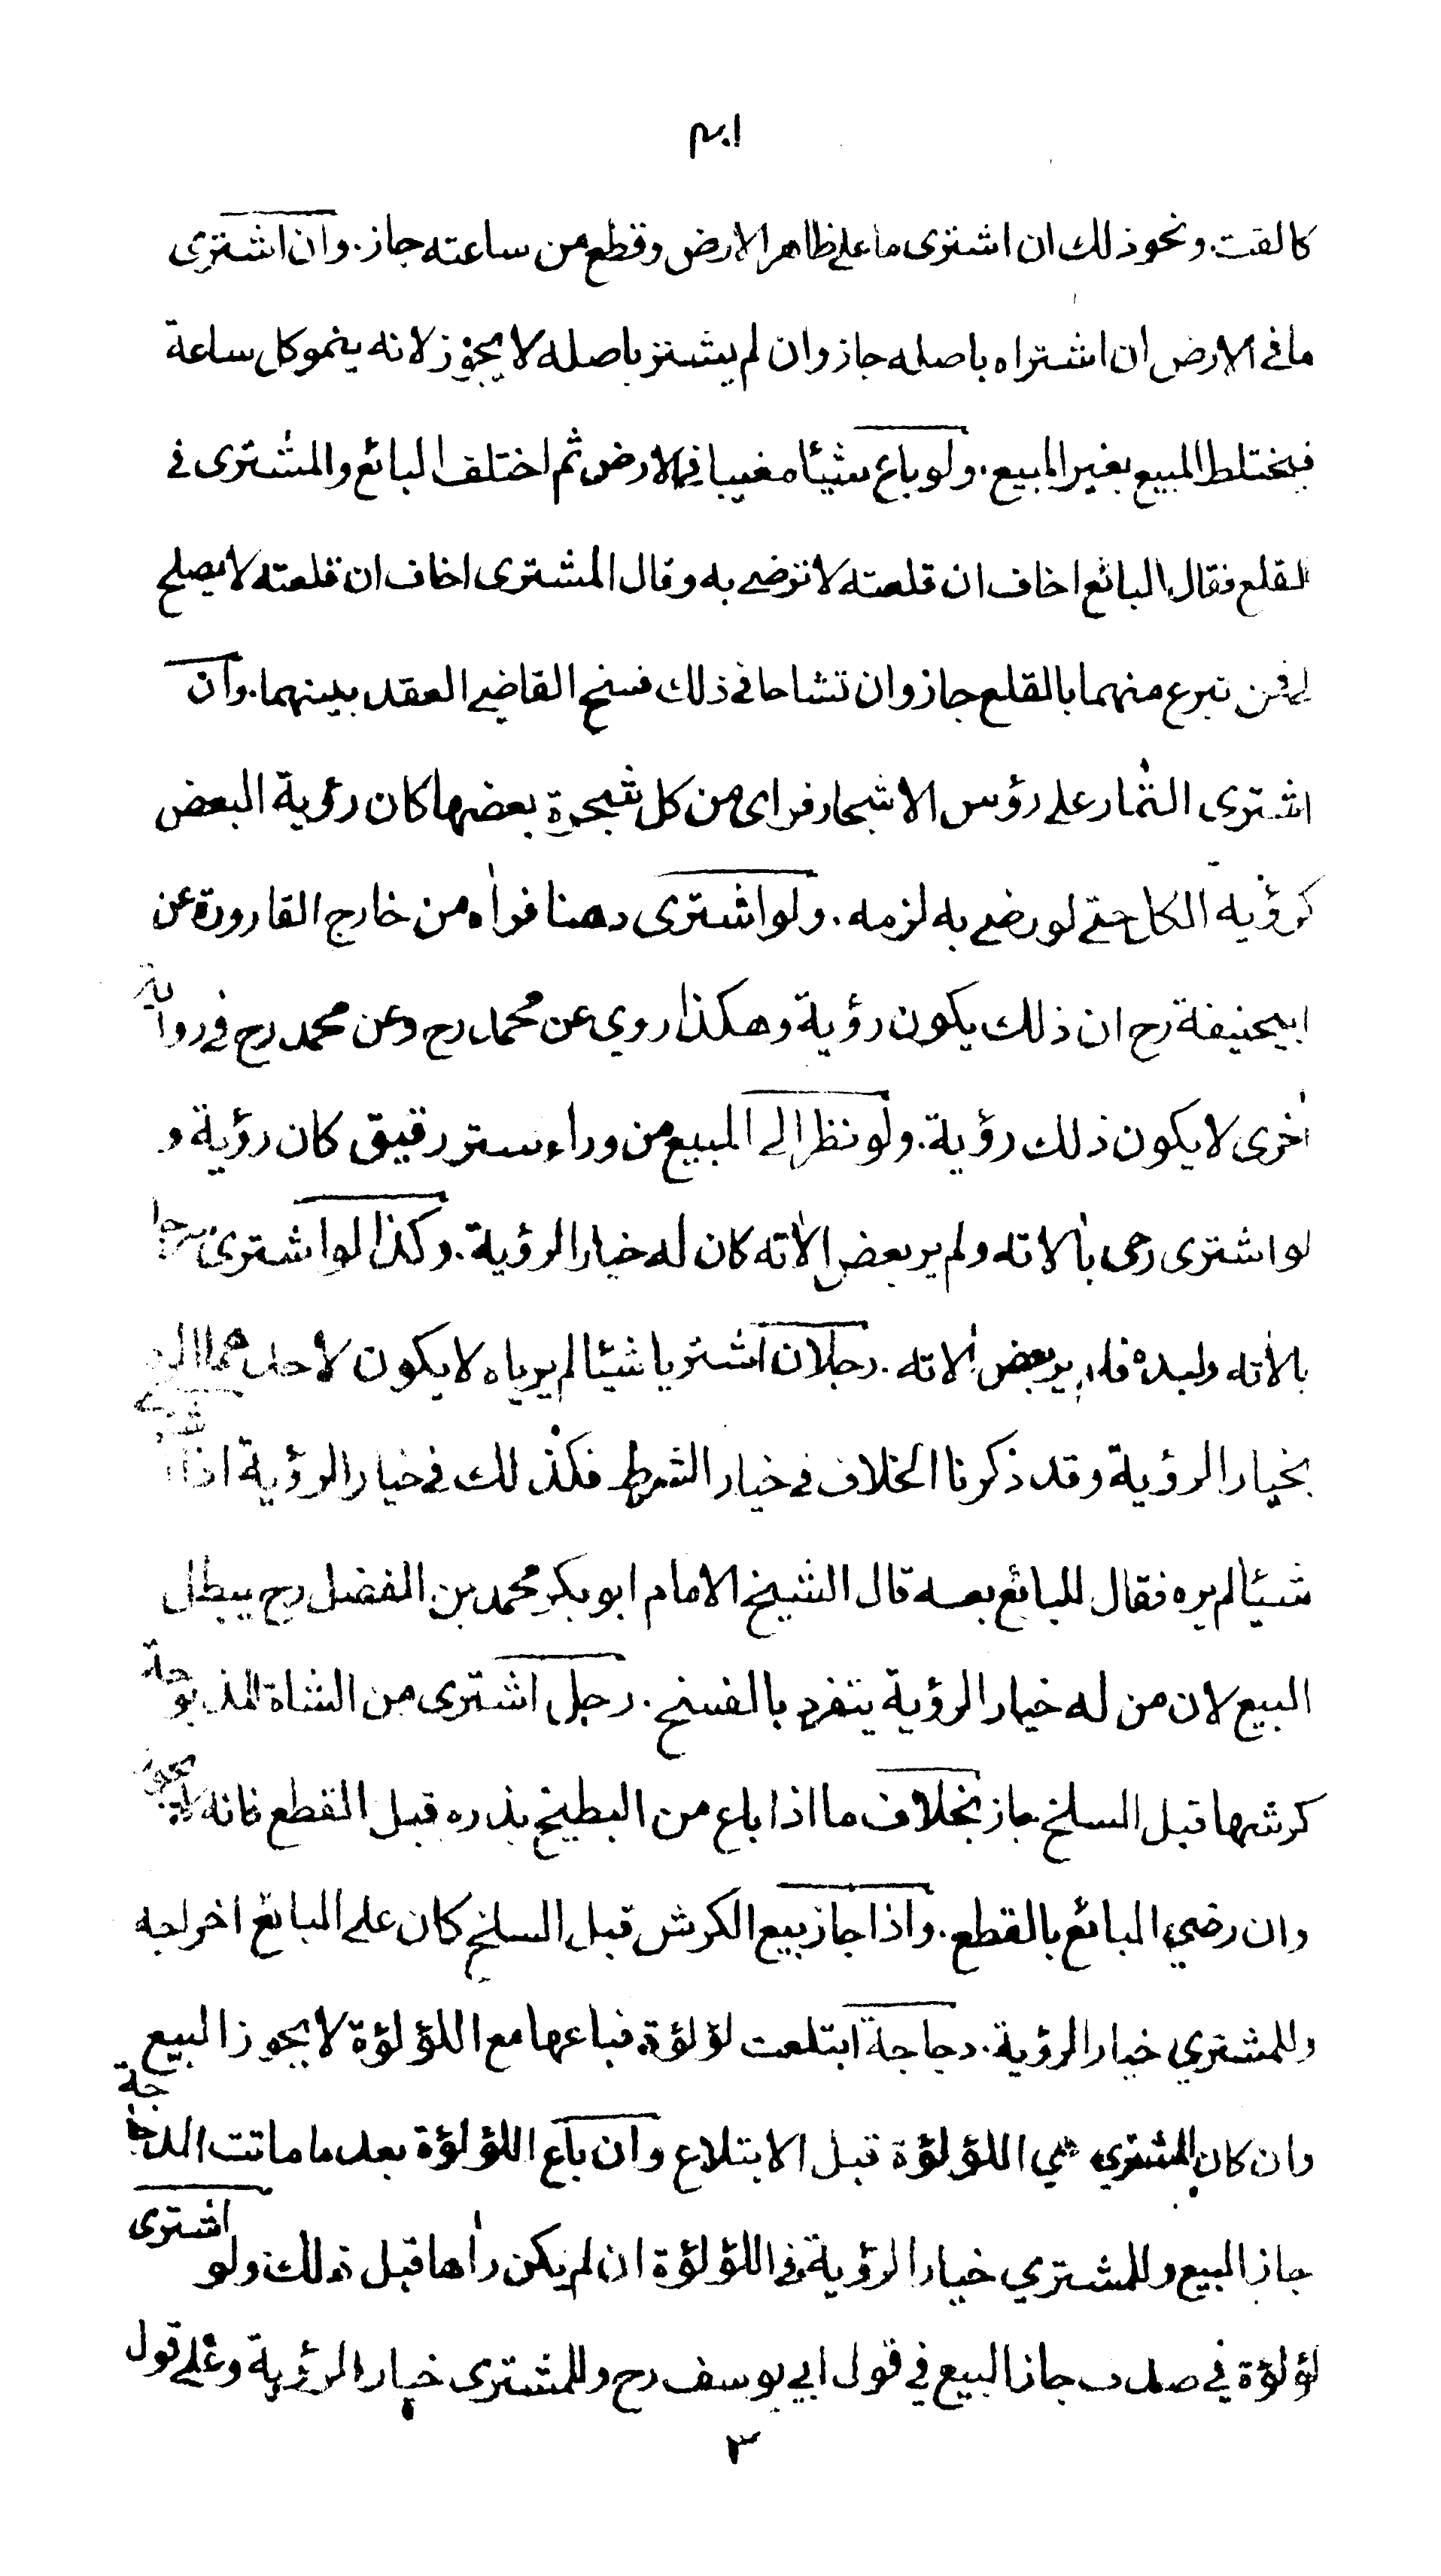 كالقت. ونحو ذلك ان اشترى ما على ظاهر الارض وقطع من ساعته جاز. وان اشترى
ما في الارض ان اشتراه باصله جاز وان لم يشتر باصله لا يجوز لانه ينمو كل ساعة
فيختلط المبيع بغير المبيع. ولو باع شيئا مغيبا في الارض ثم اختلف البائع والمشترى في
القلع فقال البائع اخاف ان قلعته لا ترضى به وقال المشترى اخاف ان قلعته لا يصلح
لى فمن تبرع منهما بالقلع جاز وان تشاحا في ذلك فسخ القاضي العقد بينهما. وان
اشترى الثمار على رؤس الاشجار فراى من كل شجرة بعضها كان رؤية البعض
كرؤية الكل حتى لو رضى به لزمه. ولو اشترى دهنا فرأه من خارج القارورة عن
ابيحنيفة رح ان ذلك يكون رؤية وهكذا روي عن محمد رح وعن محمد رح في رواية
أخرى لا يكون ذلك رؤية. ولو نظر الى المبيع من وراء ستر رقيق كان رؤية و
لو اشترى رحى بألاته ولم ير بعض ألاته كان له خيار الرؤية. وكذا لو اشترى سرجا
بألاته ولبده فلم ير بعض ألاته. رجلان اشتريا شيئا لم يرياه لا يكون لأحدهما الرد
بخيار الرؤية وقد ذكرنا الخلاف في خيار الشرط فكذلك في خيار الرؤية اذا اشترى
شيئا لم يره فقال للبائع بعه قال الشيخ الامام ابو بكر محمد بن الفضل رح يبطل
البيع لان من له خيار الرؤية يتفرد بالفسخ. رجل اشترى من الشاة المذبوحة
كرشها قبل السلخ جاز بخلاف ما اذا باع من البطيخ بذره قبل القطع فانه لا يجوز
وان رضي البائع بالقطع. واذا جاز بيع الكرش قبل السلخ كان على البائع اخراجه
وللمشتري خيار الرؤية. دجاجة ابتلعت لؤلؤة فباعها مع اللؤلؤة لا يجوز البيع
وان كان المشتري رأي اللؤلؤة قبل الابتلاع وان باع اللؤلؤة بعد ما ماتت الدجاجة
جاز البيع وللمشتري خيار الرؤية في اللؤلؤة ان لم يكن رأها قبل ذلك ولو اشترى
لؤلؤة في صدف جاز البيع في قول ابي يوسف رح وللمشترى خيار الرؤية وعلى قول
٣